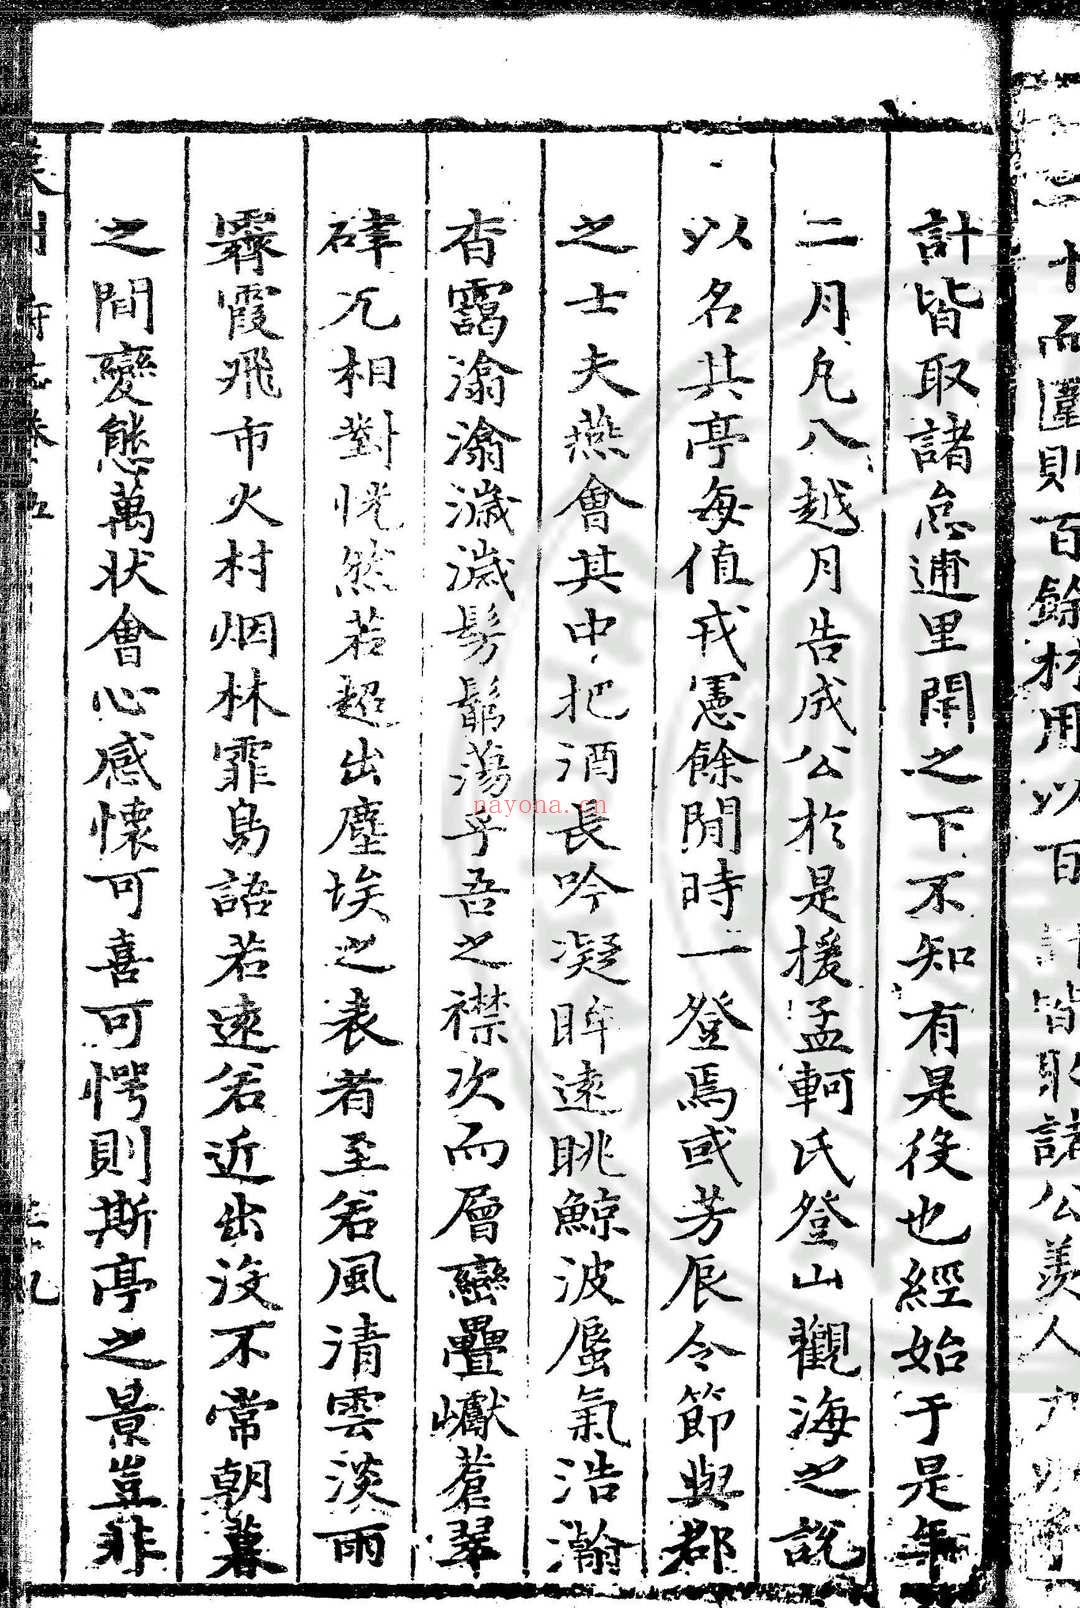 十而圍則百餘材用以百計皆取諸公羨人力
計皆取諸怠逋里閈之下不知有是役也經始于是年
二月凡八越月告成公於是援孟軻氏登山觀海之說
以名其亭每值戎憲餘閒時一登焉或芳辰令節與郡
之士夫燕會其中把酒長吟凝眸遠眺鯨波蜃氣浩瀚
杳靄滃滃濊濊髣髴蕩乎吾之襟次而層巒疊巘蒼翠
硉兀相對恍然若超出塵埃之表者至若風清雲淡雨
霽霞飛市火村烟林霏鳥語若遠若近出沒不常朝暮
之間變態萬狀會心感懷可喜可愕則斯亭之景豈非
府志卷五
nayona.cn